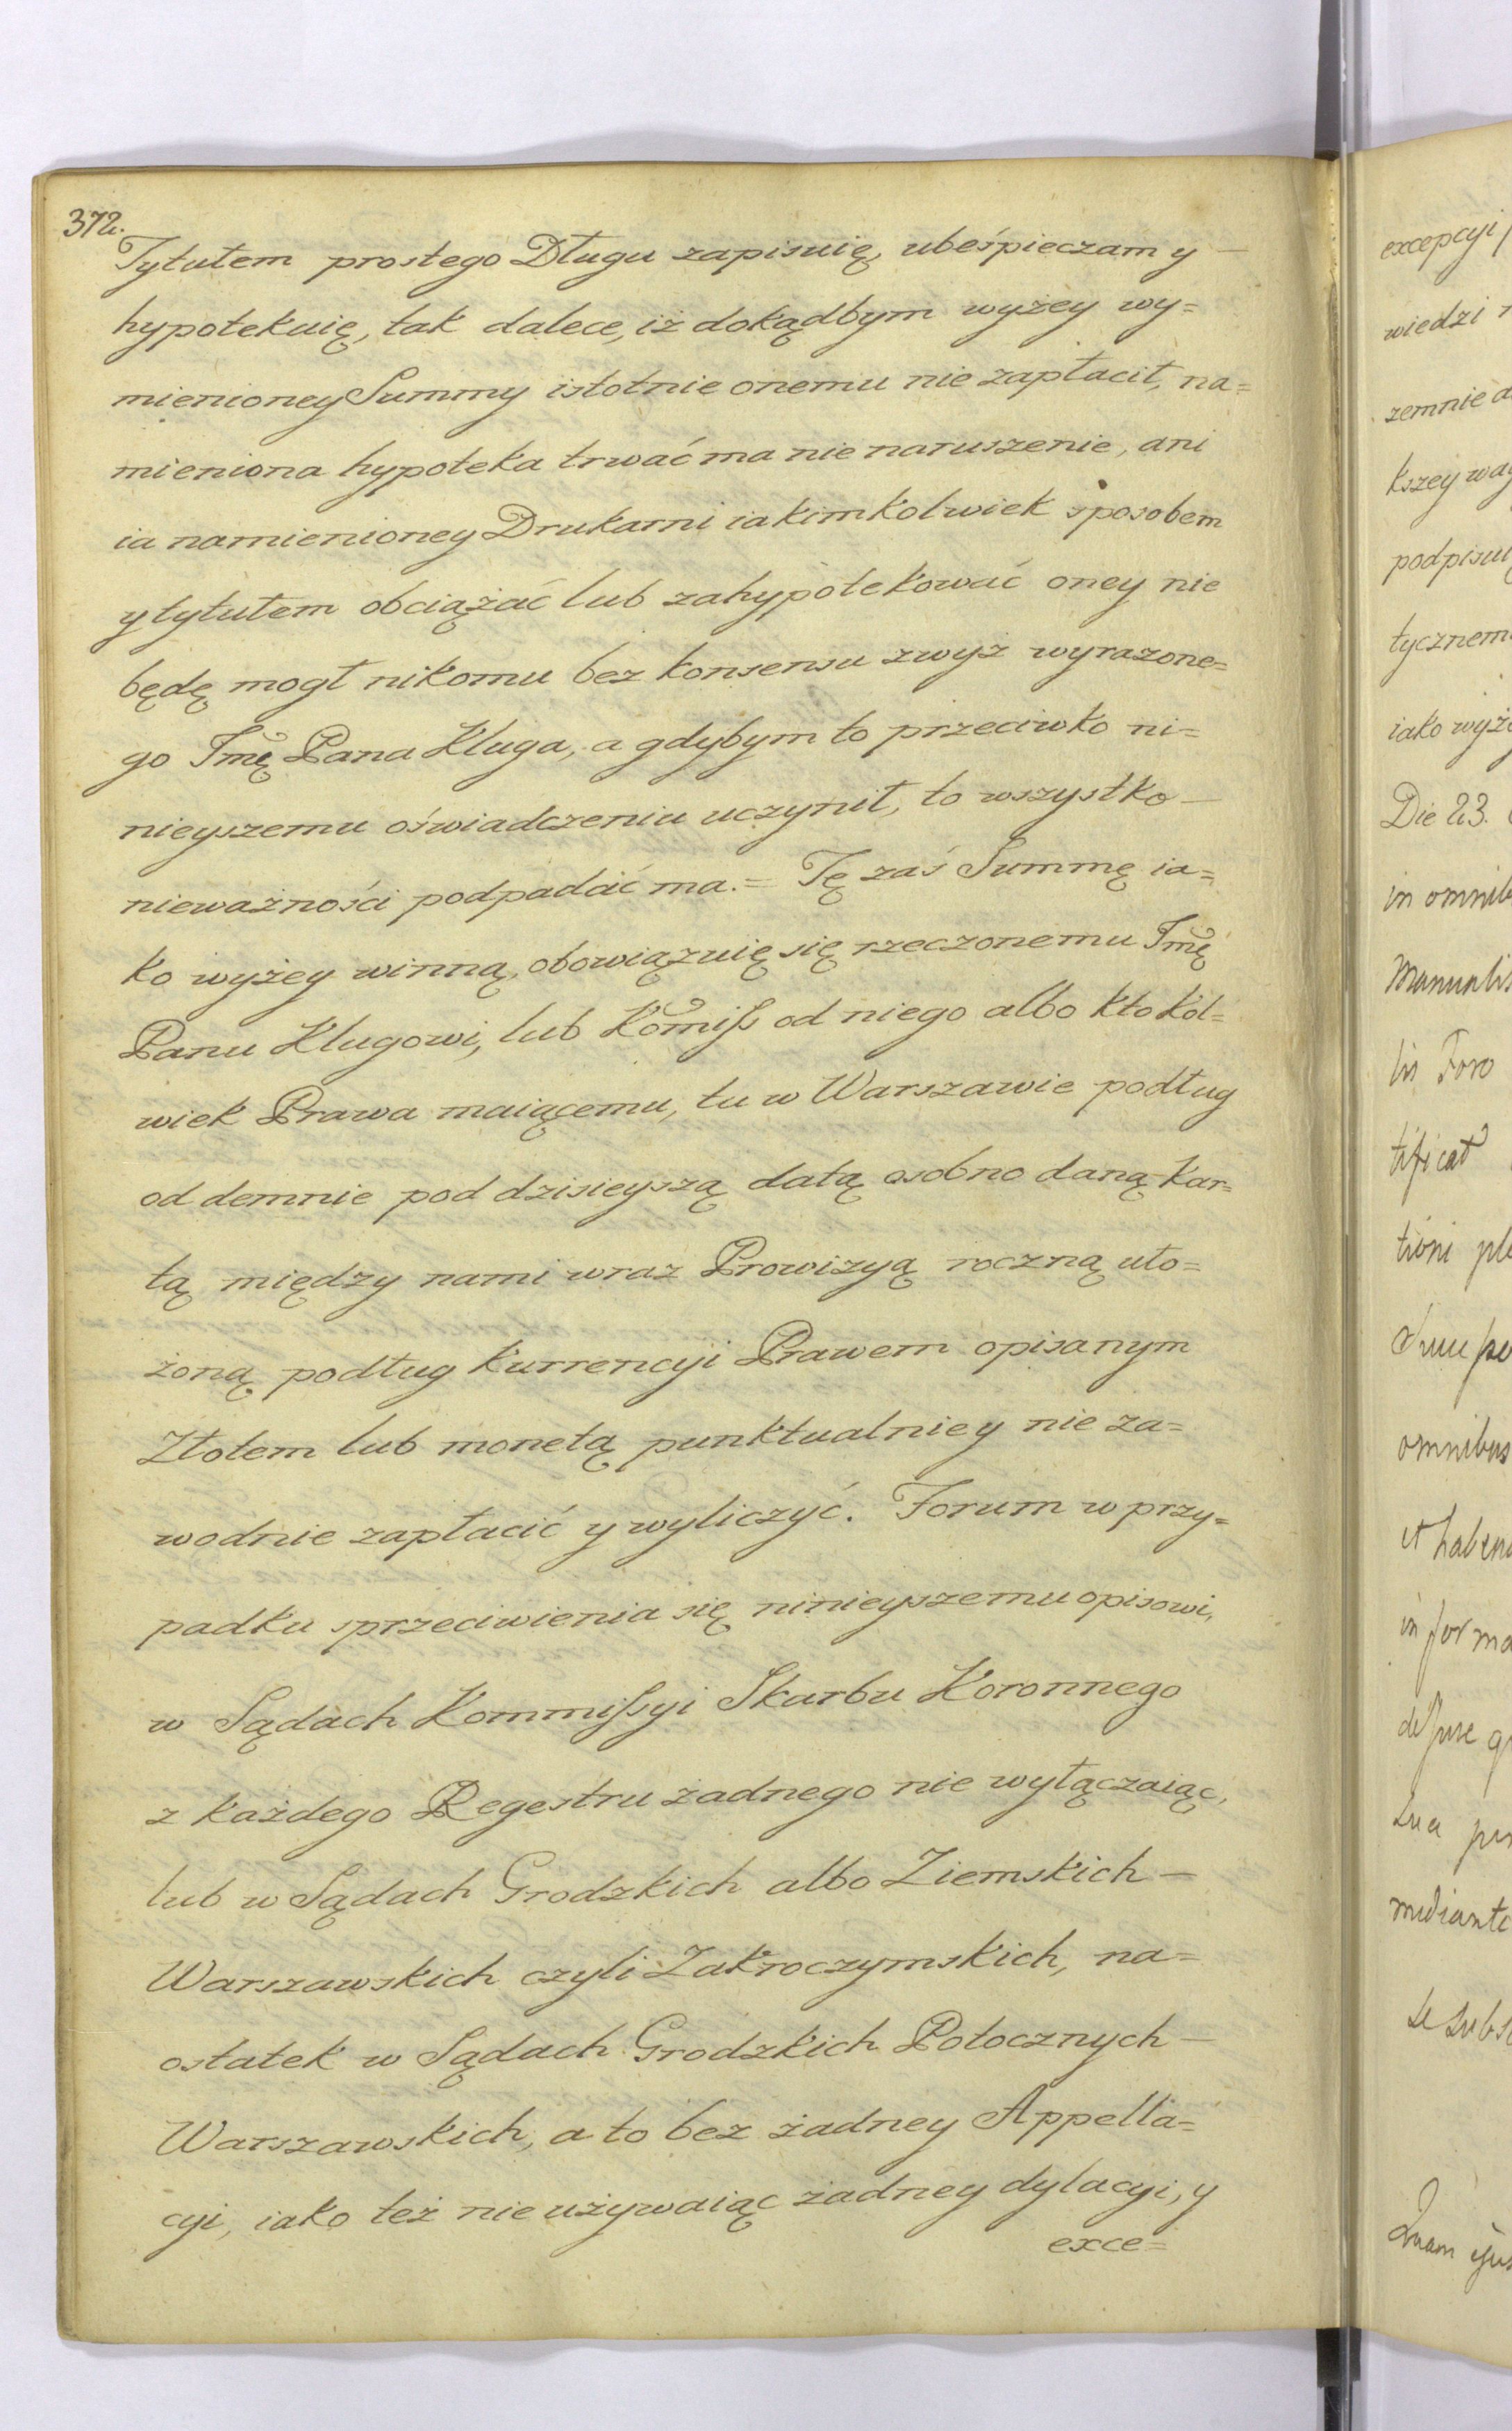 372.
Tytułem prostego Długu zapisuię, ubeśpieczam y —
hypotekuię, tak dalece, iż dokądbym wyżey wy=
mienioney Summy istotnie onemu nie zapłacił, na=
mieniona hypoteka trwać ma nie naruszenie, ani
ia namienioney Drukarni iakimkolwiek sposobem
y tytułem obciążać lub zahypotekować oney nie
będę mogł nikomu bez konsensu zwyż wyrazone=
go Jmę Pana Kluga, a gdybym to przeciwko ni=
nieyszemu oświadczeniu uczynił, to wszystko —
nieważności podpadać ma. = Tę zaś Summę ia=
ko wyżey winną, obowiązuię się rzeczonemu Jmę
Panu Klugowi, lub Komiſs od niego albo kto kol=
wiek Prawa maiącemu, tu w Warszawie podług
od demnie pod dzisieyszą datą osobno daną Kar=
tą między nami wraz Prowizyą roczną uło=
żoną podług Kurrencyi Prawem opisanym
Złotem lub monetą punktualniey nie za=
wodnie zapłacić y wyliczyć. Forum w przy=
padku sprzeciwienia się ninieyszemu opisowi,
w Sądach Kommiſsyi Skarbu Koronnego
z każdego Regestru żadnego nie wyłączaiąc,
lub w Sądach Grodzkich albo Ziemskich —
Warszawskich czyli Zakroczymskich, na=
ostatek w Sądach Grodzkich Potocznych —
Warszawskich, a to bez żadney Appella=
cyi, iako też nie używaiąc żadney dylacyi, y
exce=
excepcyi
wiedzi
zemnie
kszey
iako
Die 23.
in
Foro
tificat
tioni
omnibus
et
in forma